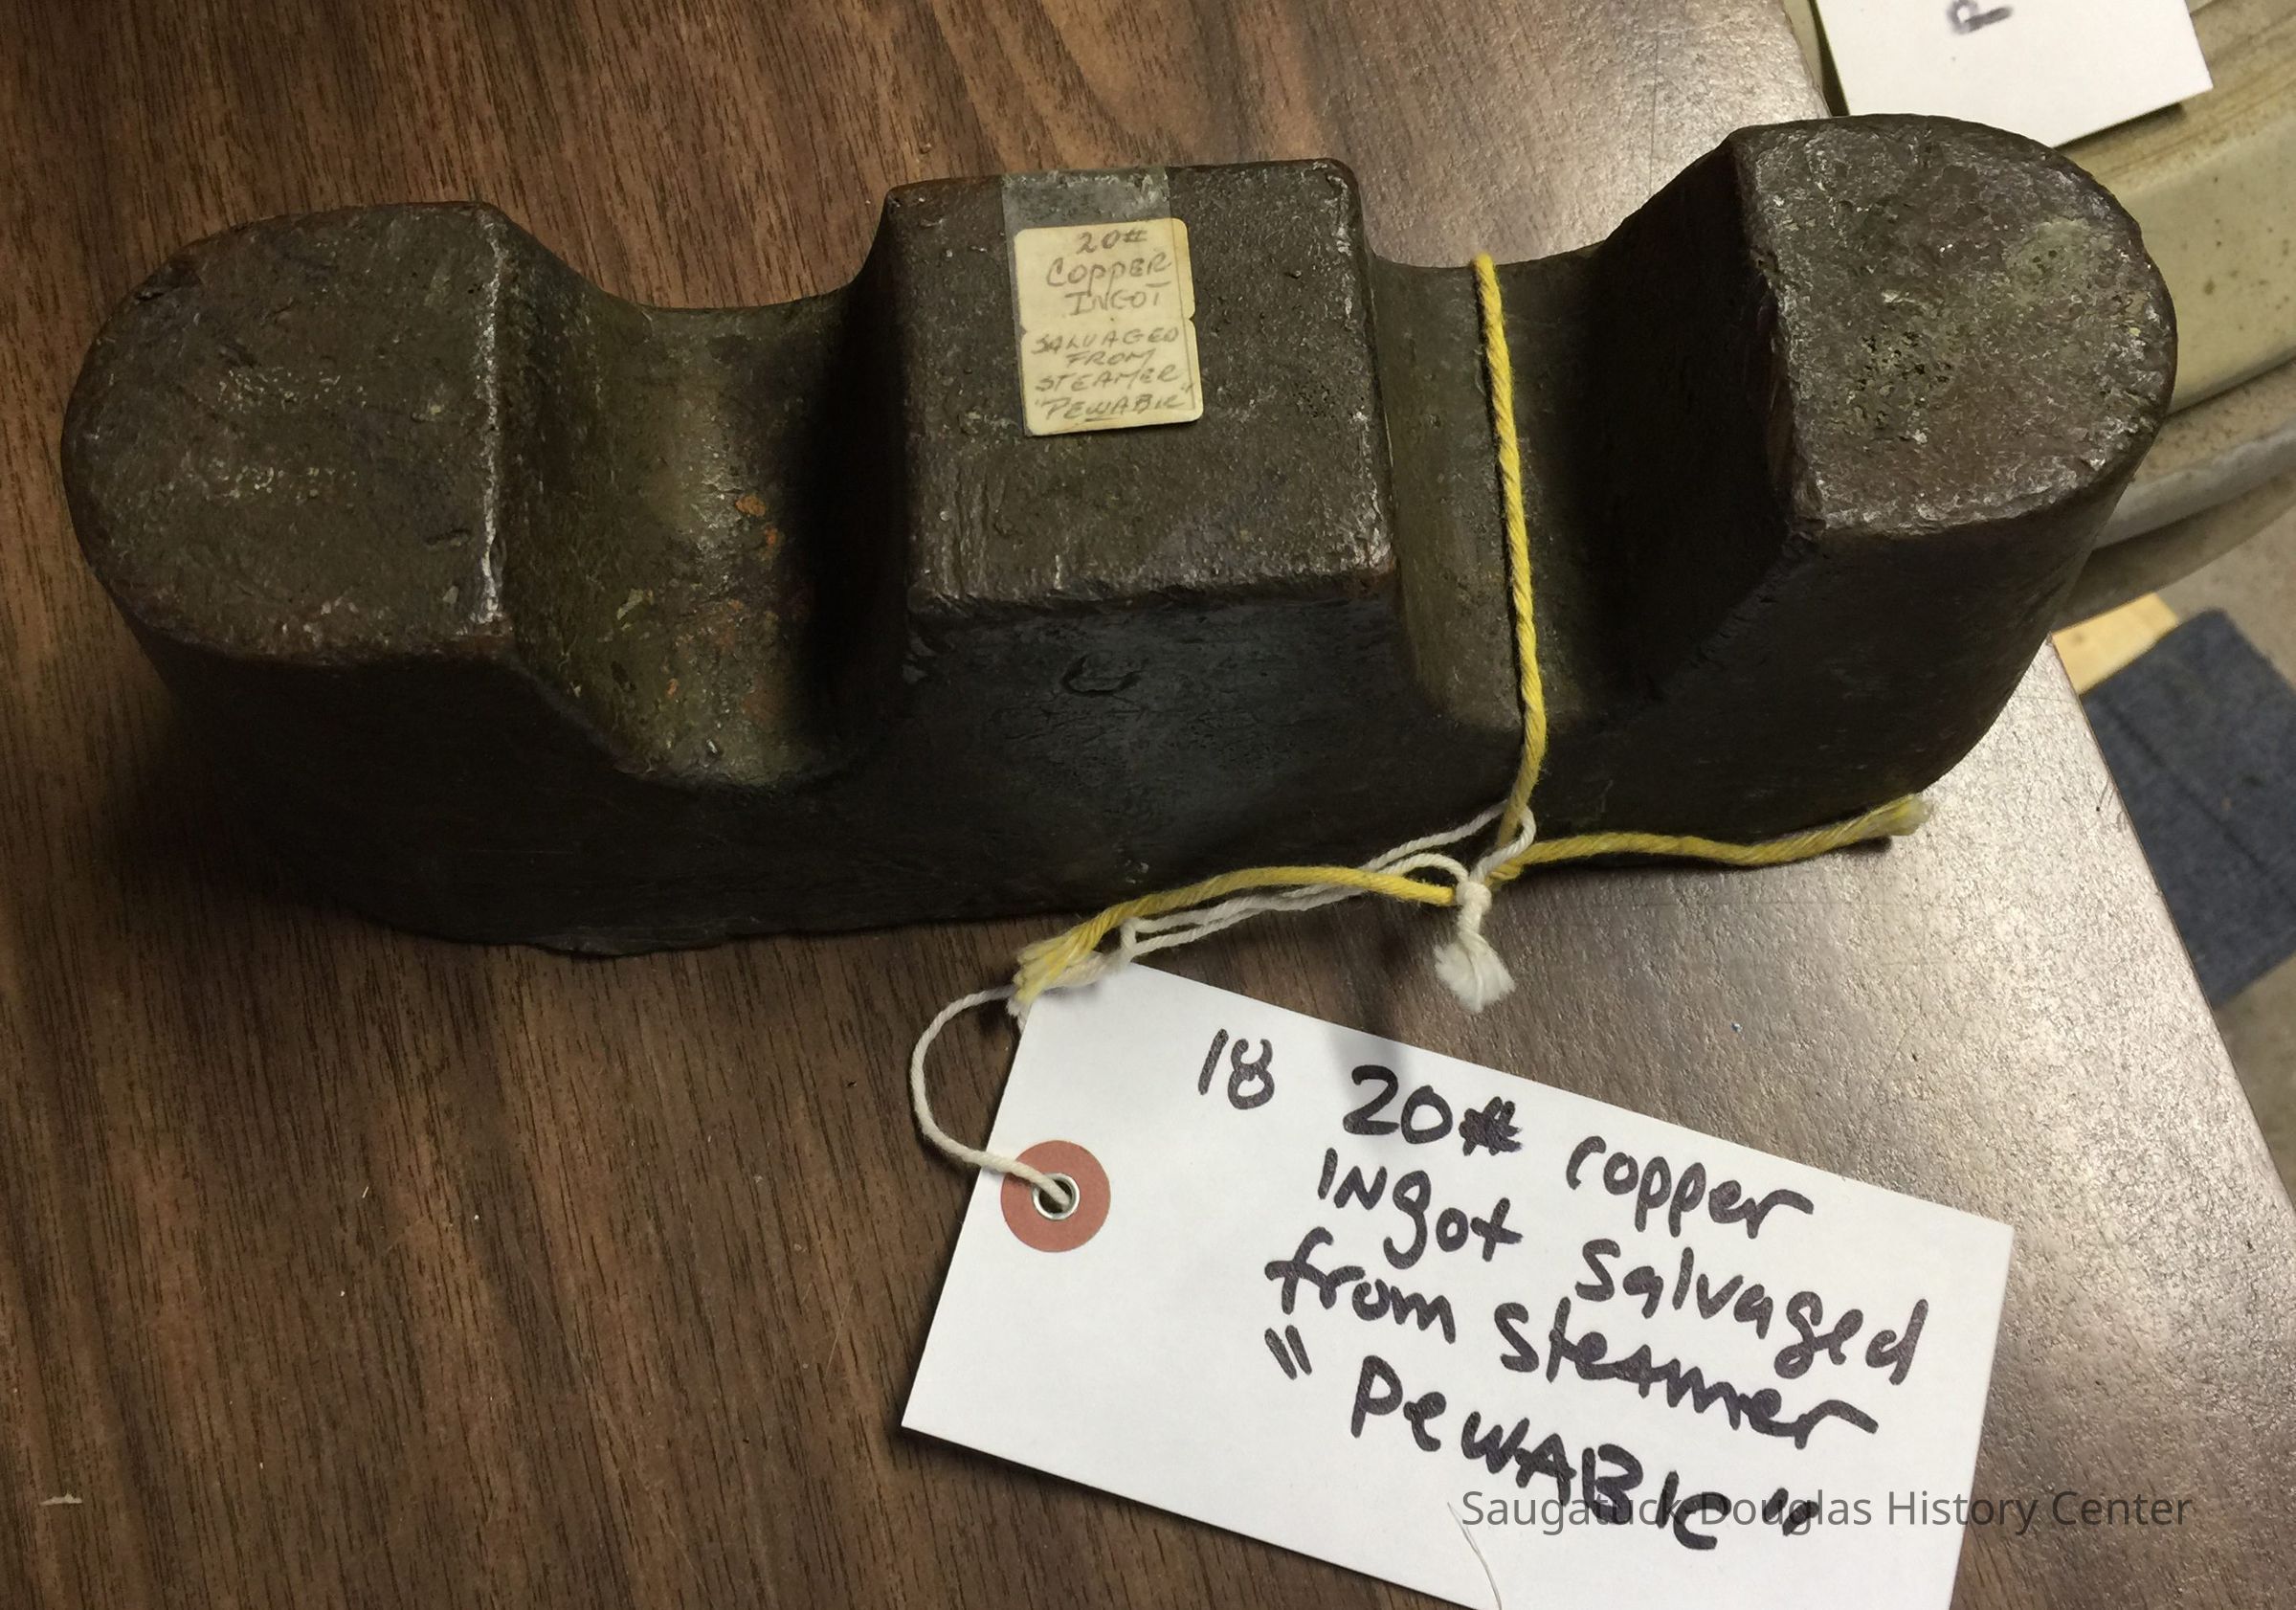 P
20#
COPPER
INGOT
SALVAGED
FROM
STEAMER
"PEWABIC"
18 20# copper
INgot Salvaged
from Steamer
"PewABIc"
Saugatuck-Douglas History Center